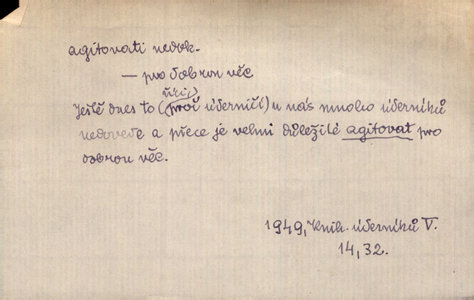 agitovati nedok.
— pro dobrou věc
Ještě dnes to (proč úderničí) u nás mnoho úderníků
nedovede a přece je velmi důležité agitovat pro
dobrou věc.
1949, Knih. úderníků V.
14, 32.